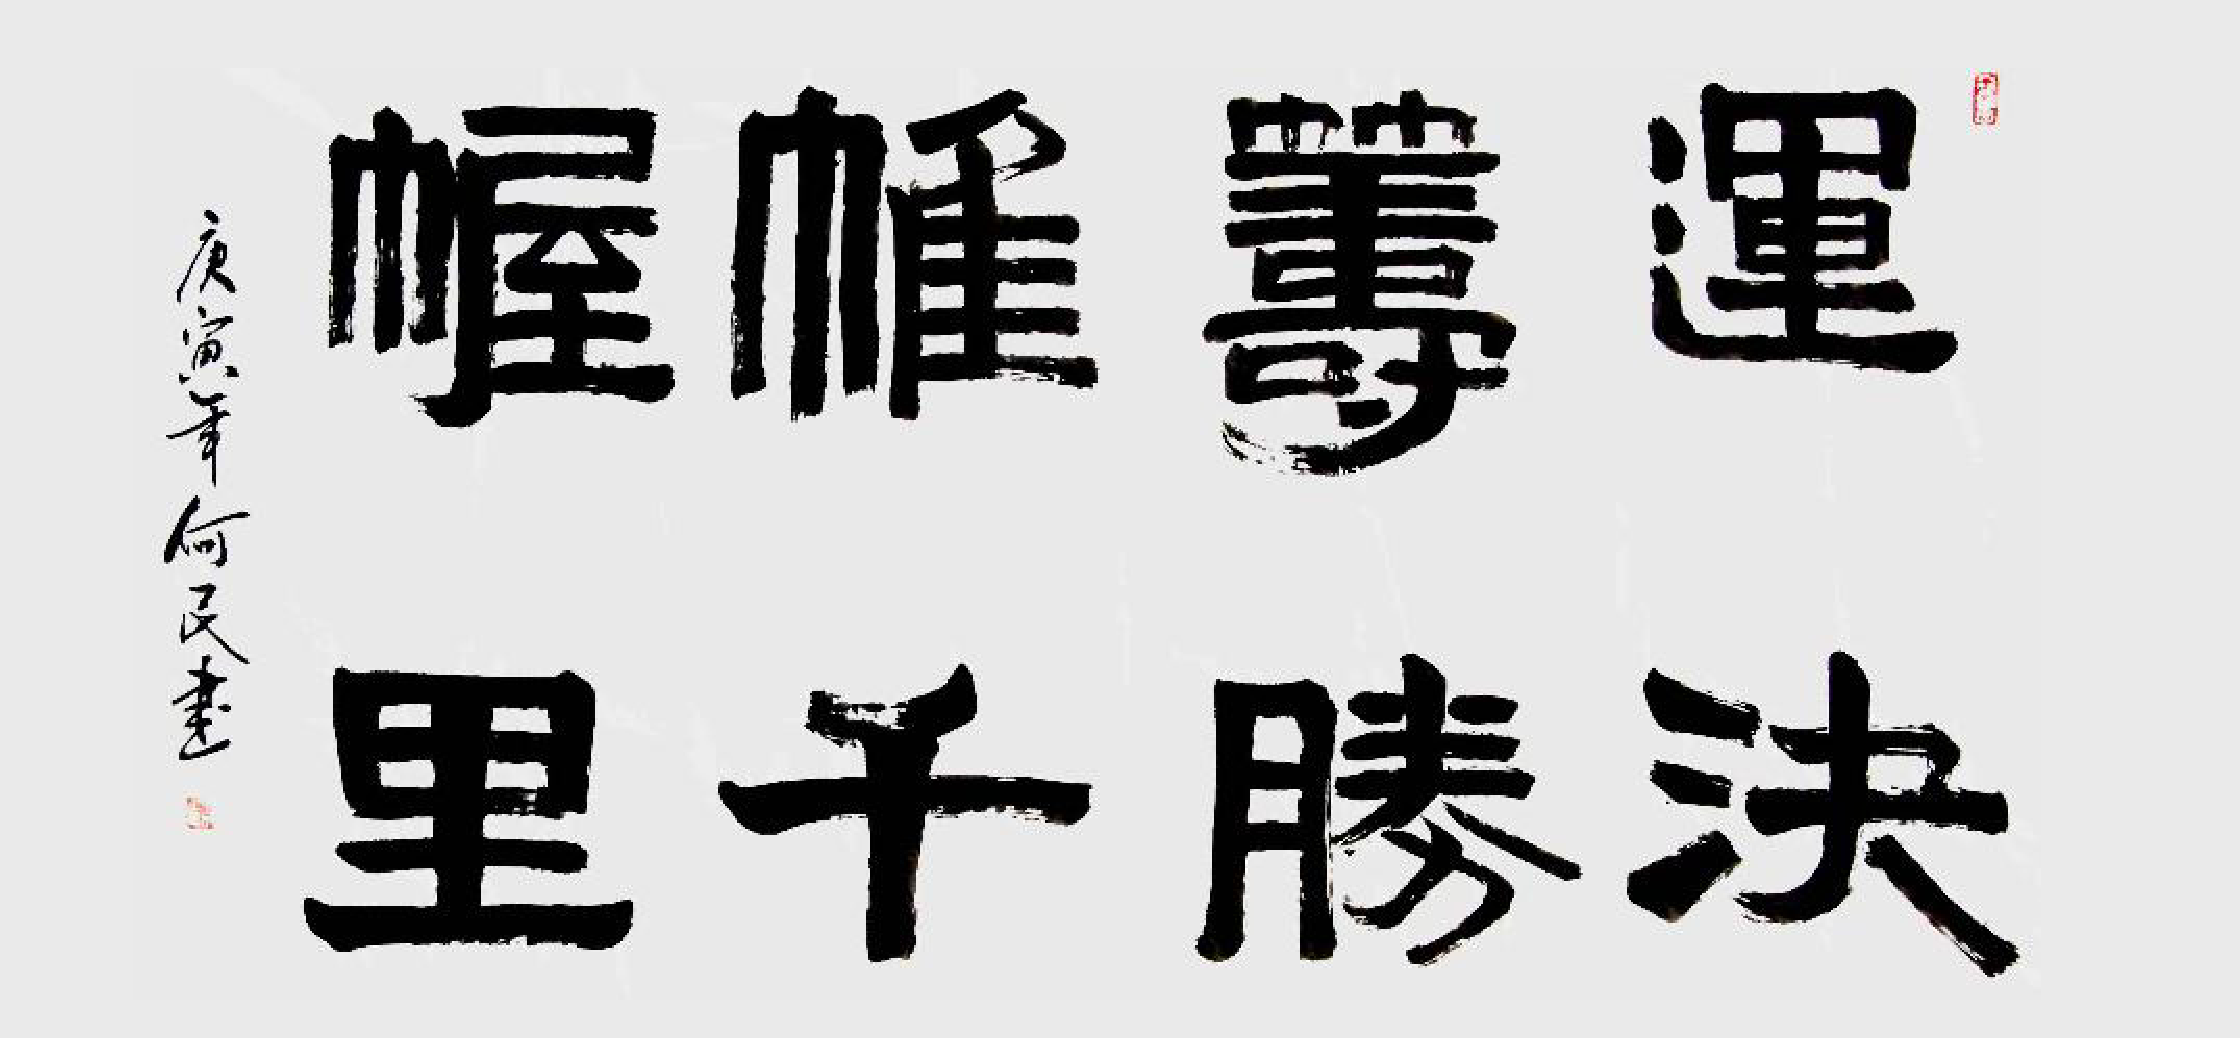 運籌帷幄
決勝千里
庚寅年何民書